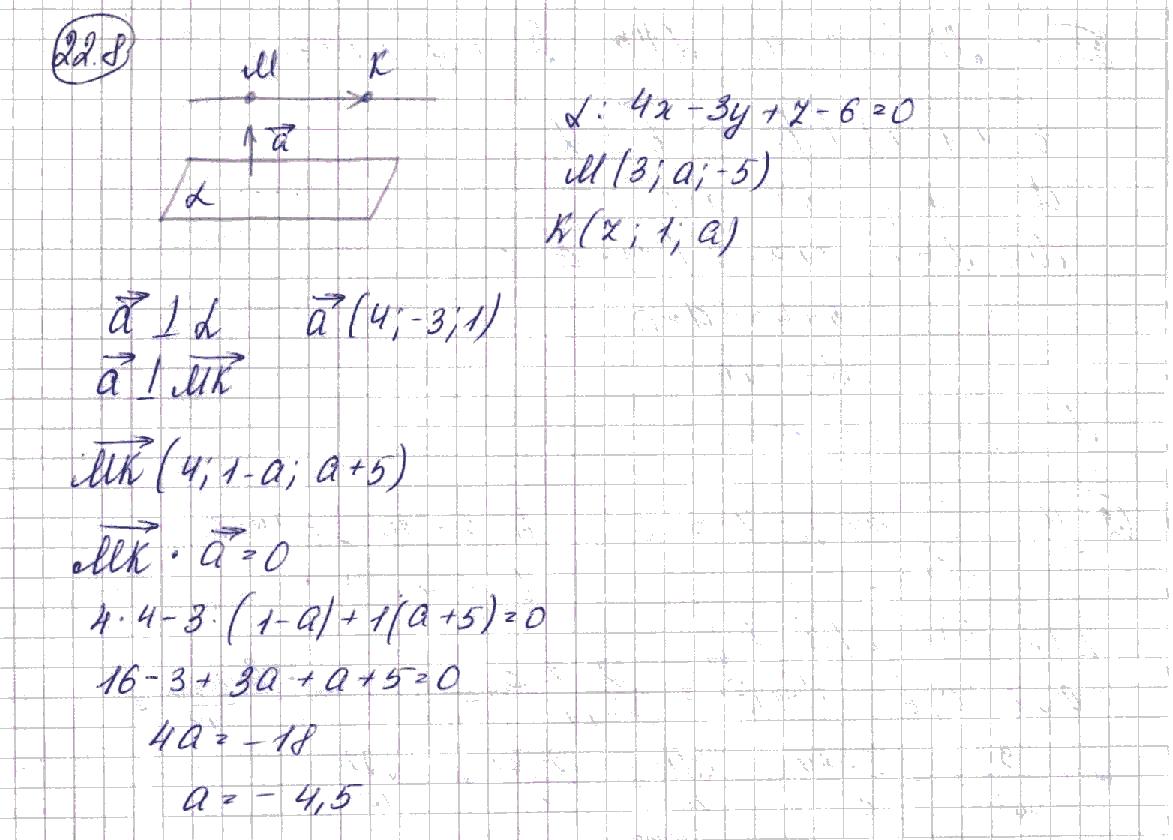 22.8
M K
a⃗
α
α: 4x - 3y + z - 6 = 0
M (3; a; -5)
K (7; 1; a)
a⃗ ⊥ α a⃗ (4; -3; 1)
a⃗ ⊥ MK⃗
MK⃗ (4; 1-a; a+5)
MK⃗ · a⃗ = 0
4 · 4 - 3 · (1-a) + 1(a+5) = 0
16 - 3 + 3a + a + 5 = 0
4a = -18
a = - 4,5